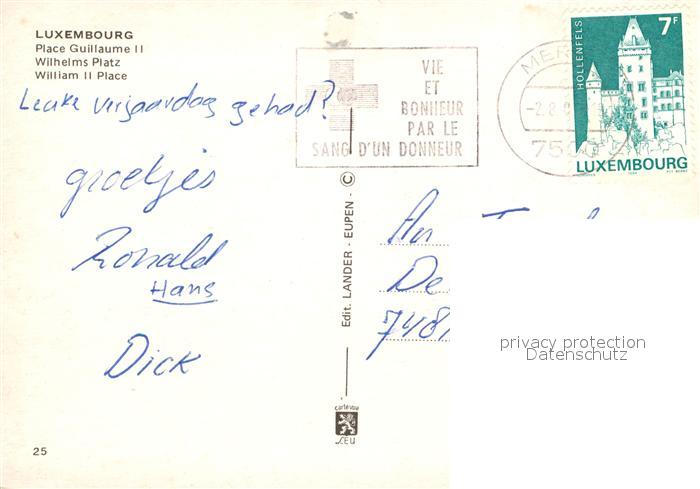 LUXEMBOURG
Place Guillaume II
Wilhelms Platz
William II Place
Leuke verjaardag gehad?
groetjes
Ronald
Hans
Dick
25
VIE
ET
BONHEUR
PAR LE
SANG D'UN DONNEUR
Edit. LANDER - EUPEN - ©
cartevue
LEU
MER
-2.8.
750
HOLLENFELS
7F
LUXEMBOURG
De
7481
privacy protection
Datenschutz